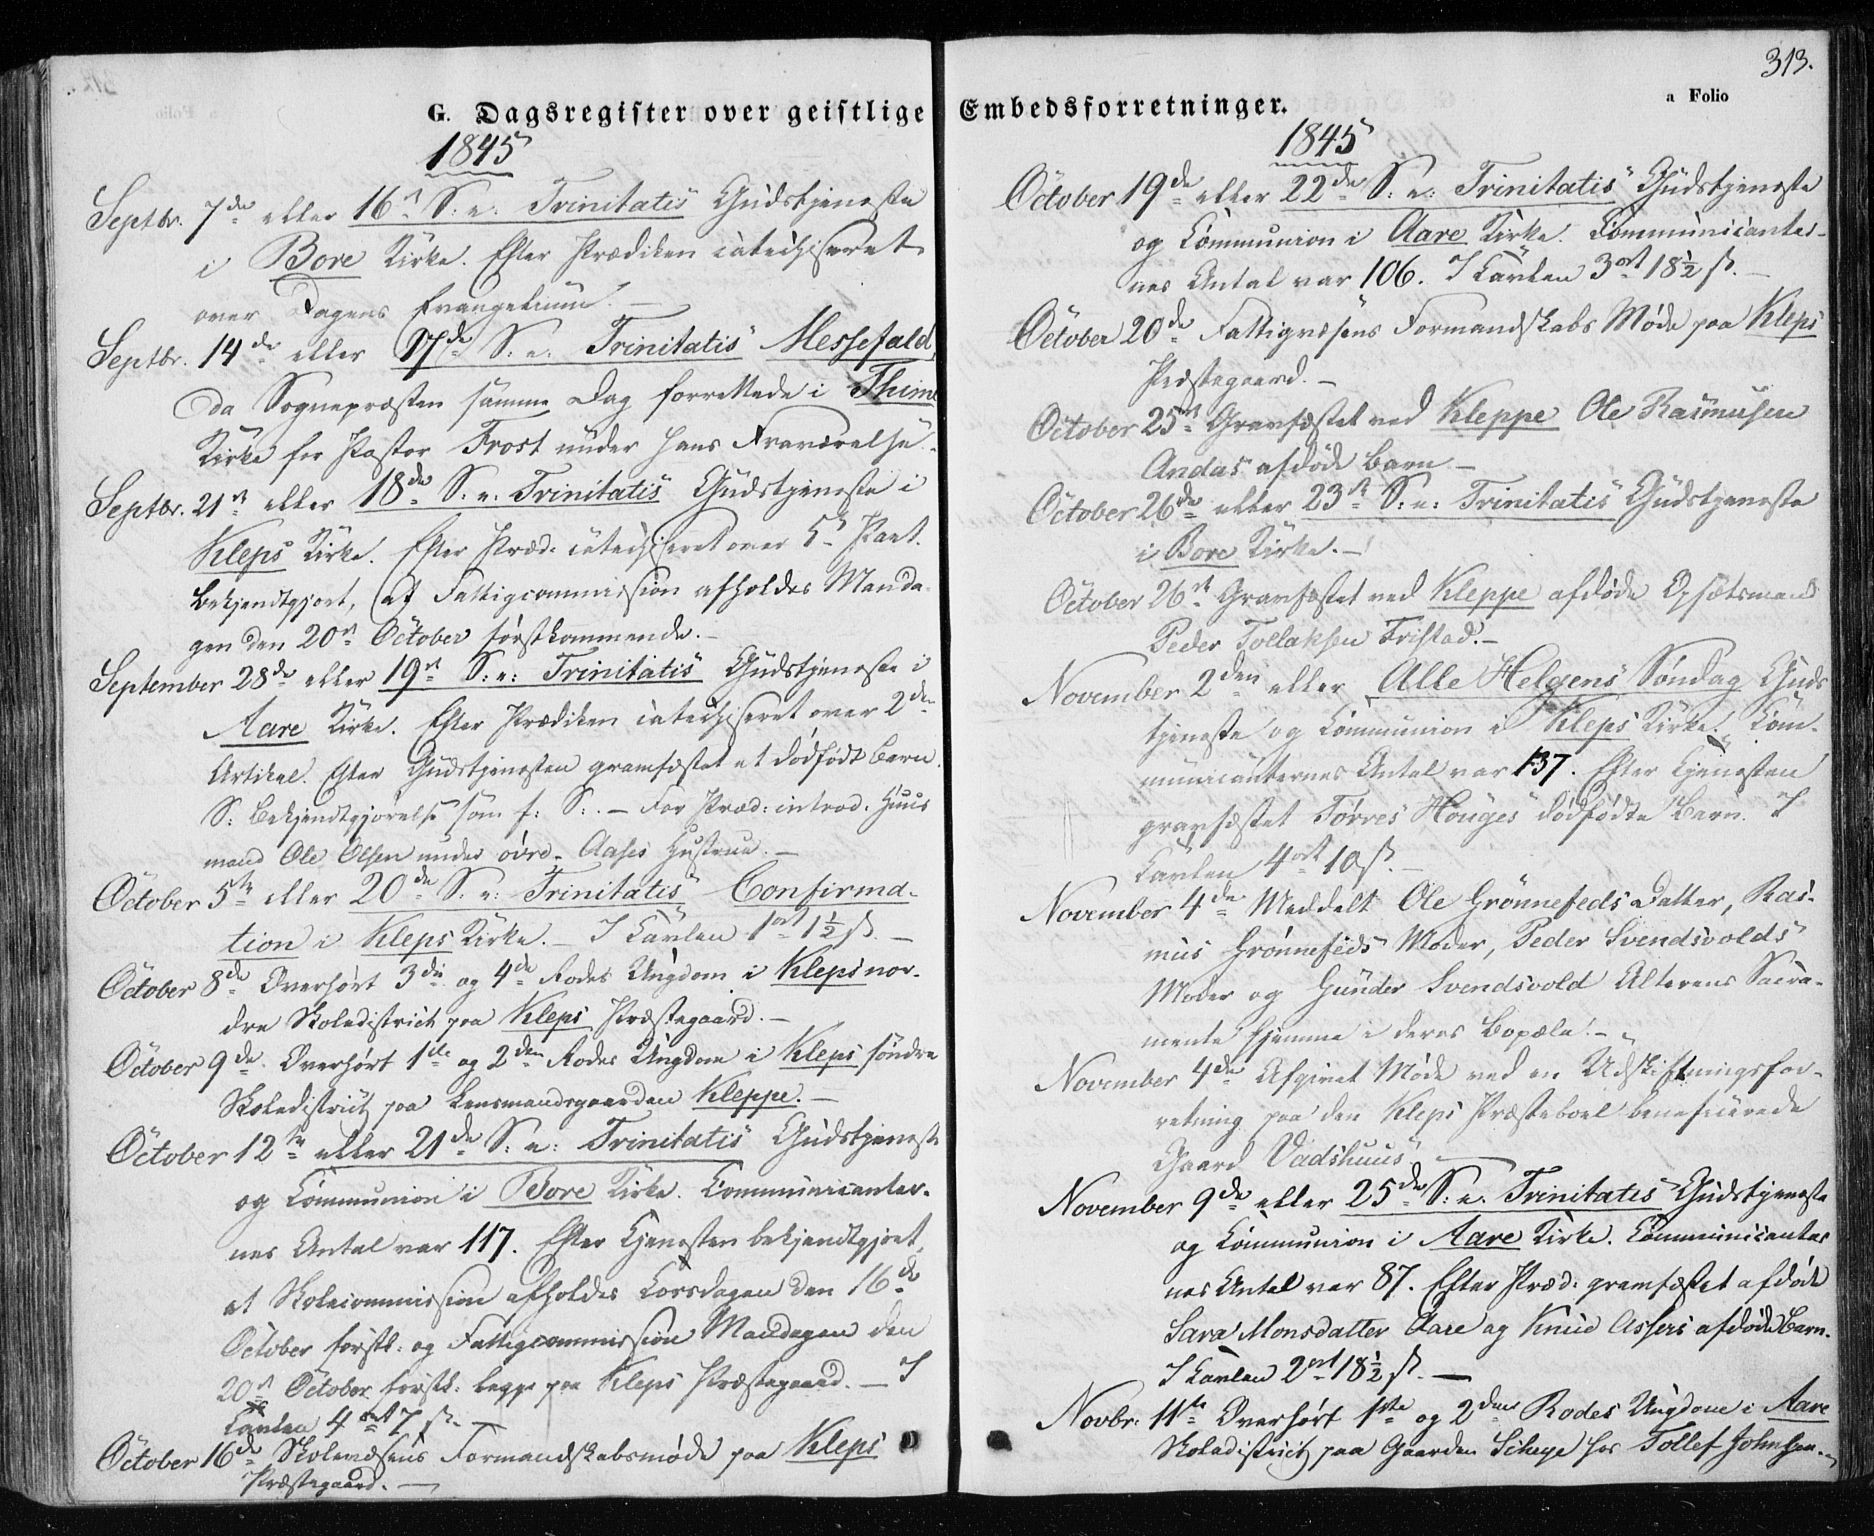 G. Dagsregister over geistlige
1845
Septbr. 7de eller 16de S. e. Trinitatis Gudstjeneste
i Bore Kirke. Efter Prædiken catechiseret
over Dagens Evangelium. —
Septbr. 14de eller 17de S. e. Trinitatis Messefald,
da Sognepræsten samme Dag forrettede i Thime
Kirke for Pastor Frost under hans Fraværelse. -
Septbr. 21de eller 18de S. e. Trinitatis Gudstjeneste i
Kleps Kirke. Efter Præd: catechiseret over 5. Part.
bekjendtgjort, at Fattigcommission afholdes Manda-
gen den 20de October førstkommende. -
September 28de eller 19de S. e: Trinitatis Gudstjeneste i
Aare Kirke. Efter Prædiken catechiseret over 2den
Artikel. Efter Gudstjenesten gravfæstet et dødfødt Barn.
S: Bekjendtgjørelse som f: S: . — For Præd: introd. Huus
mand Ole Olsen under øvre- Aases Hustrue. —
October 5te eller 20de S. e: Trinitatis Confirma-
tion i Kleps Kirke. — I Tavlen 1 ort 1½ ß. —
October 8de Overhørt 3die og 4de Rodes Ungdom i Kleps nor-
dre Skoledistrict paa Kleps Præstegaard. —
October 9de Overhørt 1ste og 2den Rodes Ungdom i Kleps søndre
Skoledistrict paa Lensmandsgaarden Kleppe. —
October 12te eller 21de S. e: Trinitatis Gudstjeneste
og Communion i Bore Kirke. Communicanter-
nes Antal var 117. Efter Tjenesten bekjendtgjort,
at Skolecommission afholdes Torsdagen den 16de
October førstk: og Fattigcommission Mandagen den
20de October førstk: begge paa Kleps Præstegaard. — I
Tavlen 4 ort 7 ß. —
October 16de Skolevæsens Formandskabsmøde paa Kleps
Præstegaard. —
313.
Embedsforretninger.
a Folio
1845
October 19de eller 22de S: e: Trinitatis Gudstjeneste
og Communion i Aare Kirke. Communicanter-
nes Antal var 106. I Tavlen 3 ort 18½ ß. —
October 20de Fattigvæsens Formandskabs Møde paa Kleps
Præstegaard. —
October 25de Gravfæstet ved Kleppe Ole Rasmusen
Andas afdøde Barn —
October 26de eller 23de S: e: Trinitatis Gudstjeneste
i Bore Kirke. —
October 26de Gravfæstet ved Kleppe afdøde Opsætsmand
Peder Tollaksen Fristad. —
November 2den eller Alle Helgens Søndag Guds
tjeneste og Communion i Kleps Kirke. Com-
municanternes Antal var 137. Efter Tjenesten
gravfæstet Tørres Houges dødfødte Barn. I
Tavlen 4 ort 10 ß. —
November 4de Meddelt Ole Grønnefeds Datter, Ras-
mus Grønnefeds Moder, Peder Svendsvolds
Moder og Gunder Svendsvold Alterens Sacra-
mente hjemme i deres Bopæle. —
November 4de Afgivet Møde ved en Udskiftningsfor-
retning paa den Kleps Præsteboel beneficerede
Gaard Vadshuus —
November 9de eller 25de S: e. Trinitatis Gudstjeneste
og Communion i Aare Kirke. Communicanter
nes Antal var 87. Efter Præd: gravfæstet afdøde
Sara Monsdatter Aare og Knud Assers afdøde Barn.
I Tavlen 2 ort 18½ ß. —
Novbr: 11te Overhørt 1ste og 2den Rodes Ungdom i Aare
Skoledistrict paa Gaarden Scheye hos Tollef Johnsen. -